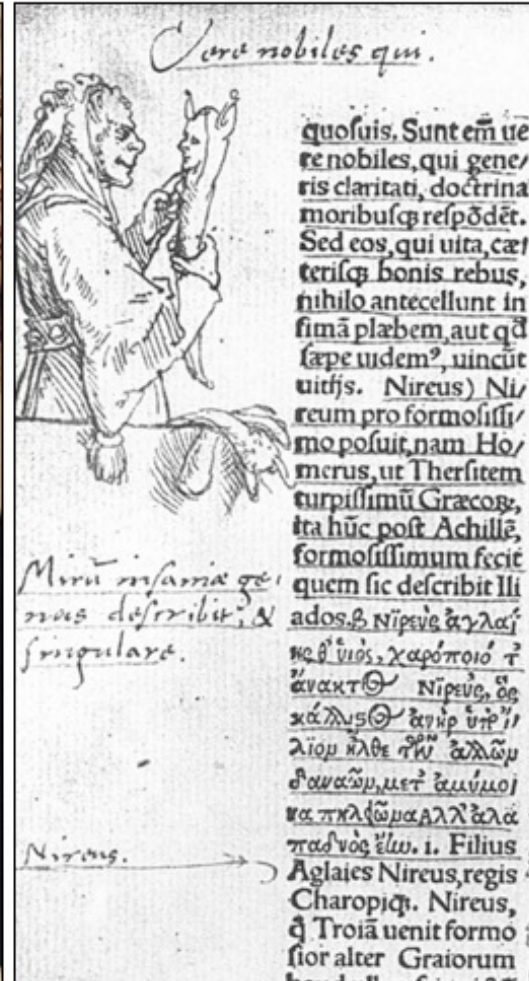 Vere nobiles qui.
quosuis. Sunt em̃ ue
re nobiles, qui gene/
ris claritati, doctrina
moribusq̃ respõdẽt.
Sed eos, qui uita, cæ
terisq̃ bonis rebus,
nihilo antecellunt in
fimã plæbem, aut qđ
sæpe uidemꝰ, uincũt
uitijs. Nireus) Ni/
reum pro formosissi/
mo posuit, nam Ho/
merus, ut Thersitem
turpissimũ Græcoꝝ,
ita hũc post Achillẽ,
formosissimum fecit
quem sic describit Ili
ados.β Νιρεὺς ἀγλαί
ης θ' ὑιὸς, χαρόποιό τ'
ἄνακτος Νιρεὺς, ὃς
κάλλιστος ἀνὴρ ὑπ' ἴ/
λιον ἦλθε τῶν ἄλλων
δαναῶν, μετ' ἀμύμο
να πηλείωνα ἀλλ' ἀλα
παδνὸς ἔην. i. Filius
Aglaies Nireus, regis
Charopiq̃. Nireus,
q̃ Troiã uenit formo
sior alter Graiorum
Mirũ insaniæ ge,
nus describit, &
singulare.
Nireus.